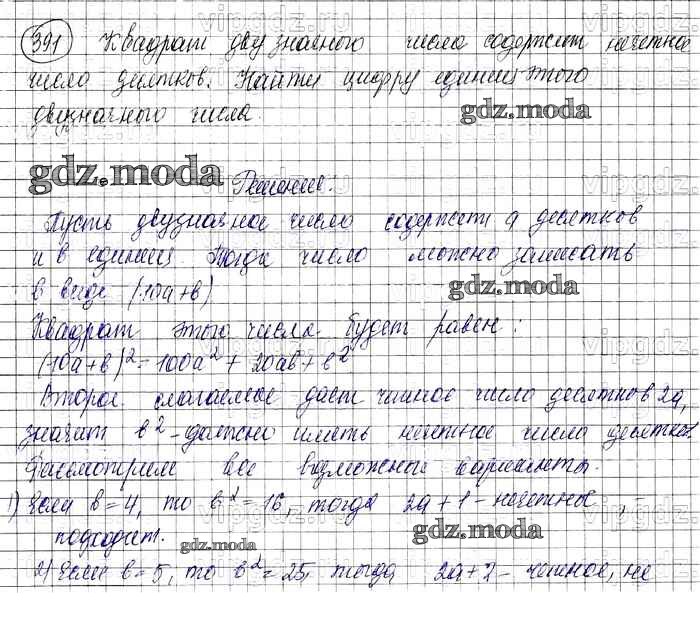 391 Квадрат двузначного числа содержит нечетное
число десятков. Найти цифру единиц этого
двузначного числа.
gdz.moda
gdz.moda Решение.
Пусть двузначное число содержит a десятков
и в единиц. Тогда число можно записать
в виде (10a+в)
gdz.moda
Квадрат этого числа будет равен:
(10a+в)²=100a²+20aв+в²
Второе слагаемое даст чётное число десятков 2a,
значит в²-должно иметь нечетное число десятков
Рассмотрим все возможные варианты.
1) Если в=4, то в²=16, тогда 2a+1-нечетное,
gdz.moda
подходит.
gdz.moda
2) Если в=5, то в²=25, тогда 2a+2- четное, не